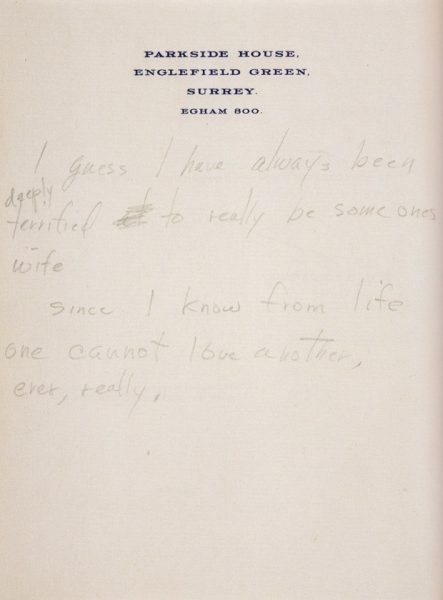 PARKSIDE HOUSE,
ENGLEFIELD GREEN,
SURREY.
EGHAM 800.
I guess I have always been
deeply
terrified to really be someones
wife
since I know from life
one cannot love another,
ever, really.